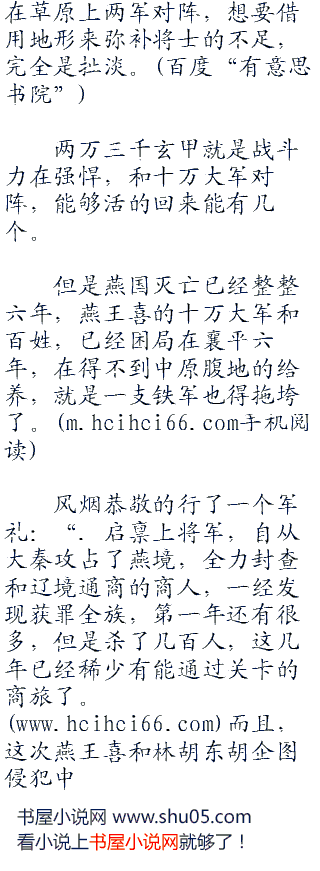 在草原上两军对阵，想要借
用地形来弥补将士的不足，
完全是扯淡。(百度“有意思
书院”)
两万三千玄甲就是战斗
力在强悍，和十万大军对
阵，能够活的回来能有几
个。
但是燕国灭亡已经整整
六年，燕王喜的十万大军和
百姓，已经困局在襄平六
年，在得不到中原腹地的给
养，就是一支铁军也得拖垮
了。(m.hcihci66.com手机阅
读)
风烟恭敬的行了一个军
礼：“．启禀上将军，自从
大秦攻占了燕境，全力封查
和辽境通商的商人，一经发
现获罪全族，第一年还有很
多，但是杀了几百人，这几
年已经稀少有能通过关卡的
商旅了。
(www.hcihci66.com)而且，
这次燕王喜和林胡东胡企图
侵犯中
书屋小说网 www.shu05.com
看小说上书屋小说网就够了！